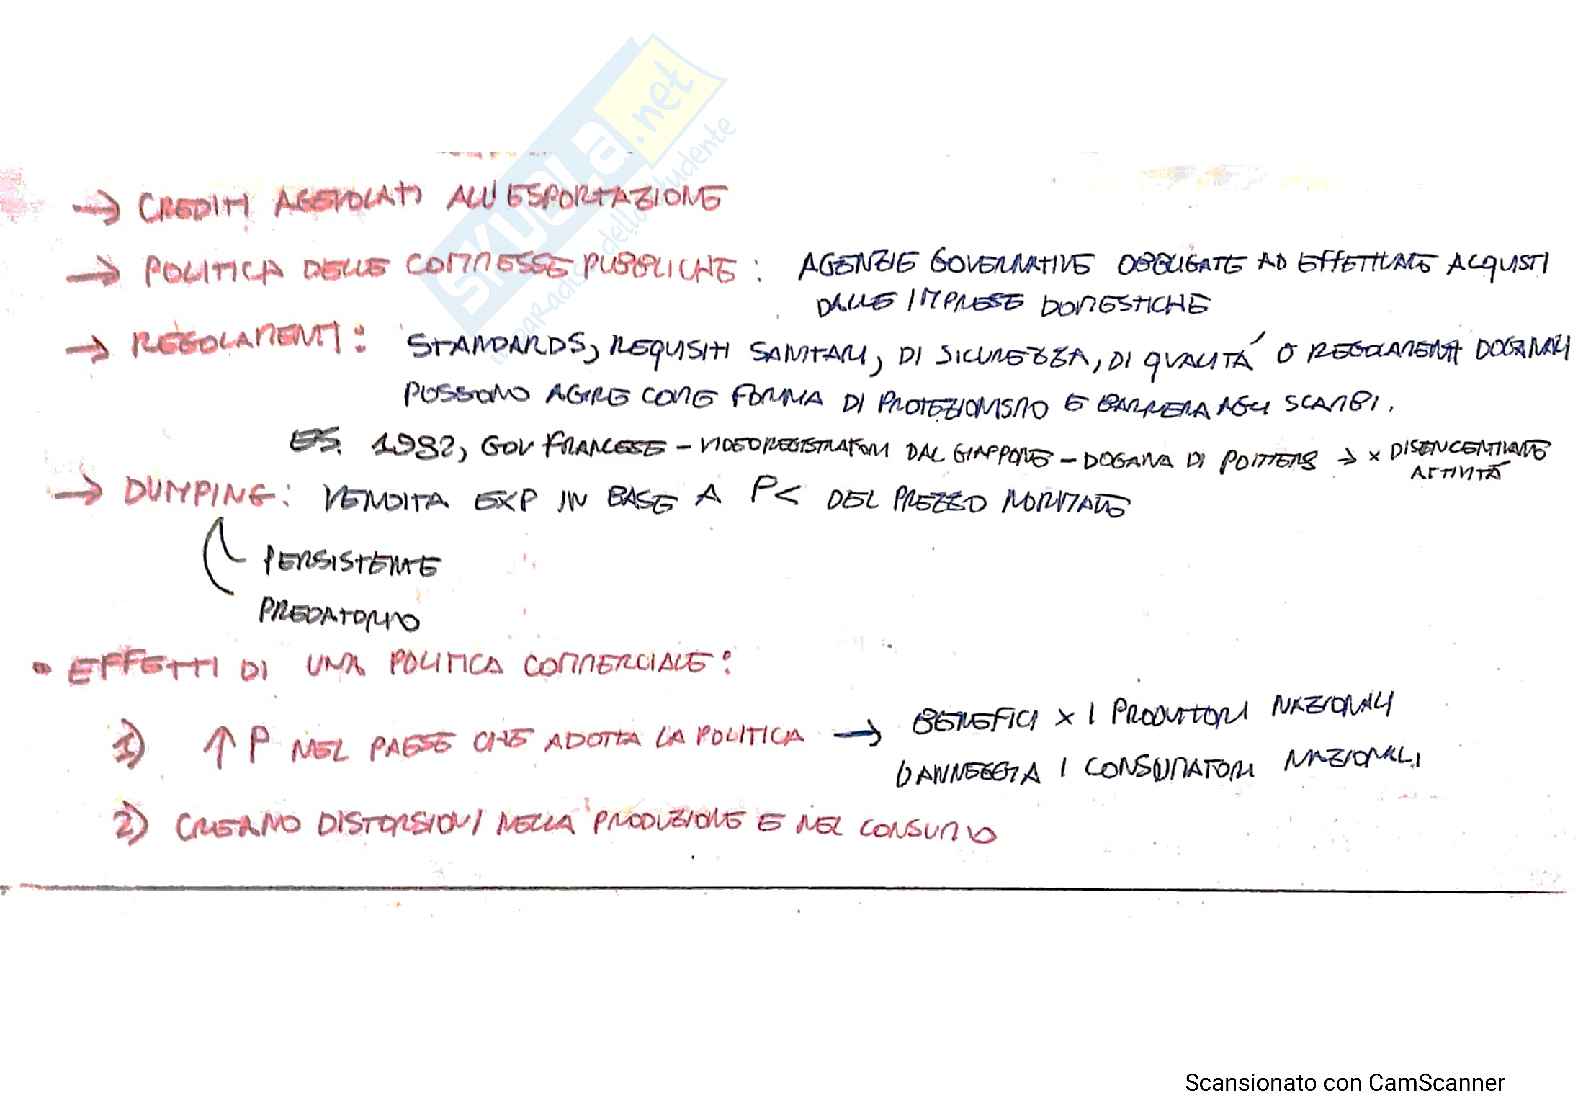 SKUOLA.net
il paradiso dello studente
→ CREDITI AGEVOLATI ALL'ESPORTAZIONE
→ POLITICA DELLE COMMESSE PUBBLICHE: AGENZIE GOVERNATIVE OBBLIGATE AD EFFETTUARE ACQUISTI
DALLE IMPRESE DOMESTICHE
→ REGOLAMENTI: STANDARDS, REQUISITI SANITARI, DI SICUREZZA, DI QUALITÀ O REGOLAMENTI DOGANALI
POSSONO AGIRE COME FORMA DI PROTEZIONISMO E BARRERA AGLI SCAMBI.
ES. 1982, GOV FRANCESE - VIDEOREGISTRATORI DAL GIAPPONE - DOGANA DI POITIERS → × DISINCENTIVARE
ATTIVITÀ
→ DUMPING: VENDITA EXP IN BASE A P< DEL PREZZO NORMALE
PERSISTENTE
PREDATORIO
• EFFETTI DI UNA POLITICA COMMERCIALE:
1) ↑ P NEL PAESE CHE ADOTTA LA POLITICA → BENEFICI × I PRODUTTORI NAZIONALI
DANNEGGIA I CONSUMATORI NAZIONALI
2) CREANO DISTORSIONI NELLA PRODUZIONE E NEL CONSUMO
Scansionato con CamScanner